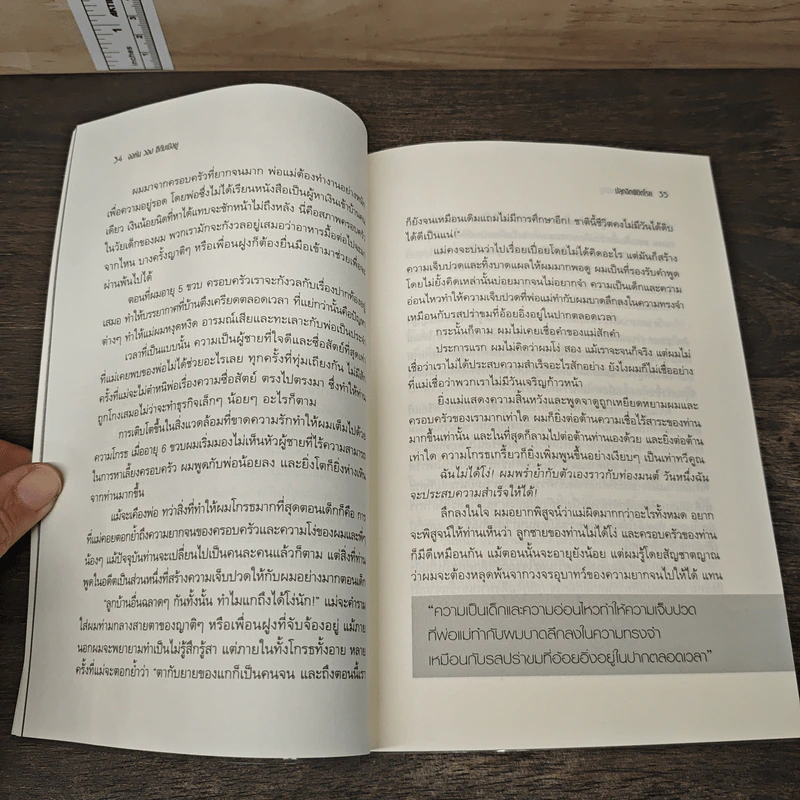 inches
1
2
3
34
ผมมาจากครอบครัวที่ยากจนมาก พ่อแม่ต้องทำงานอย่างหนัก
เพื่อความอยู่รอด โดยพ่อซึ่งไม่ได้เรียนหนังสือเป็นผู้หาเงินเข้าบ้านคน
เดียว เงินน้อยนิดที่หาได้แทบจะชักหน้าไม่ถึงหลัง นี่คือสภาพครอบครัว
ในวัยเด็กของผม พวกเรามักจะกังวลอยู่เสมอว่าอาหารมื้อต่อไปจะมา
จากไหน บางครั้งญาติๆ หรือเพื่อนฝูงก็ต้องยื่นมือเข้ามาช่วยเพื่อจะ
ผ่านพ้นไปได้
ตอนที่ผมอายุ 5 ขวบ ครอบครัวเราจะกังวลกับเรื่องปากท้องอยู่
เสมอ ทำให้บรรยากาศที่บ้านตึงเครียดตลอดเวลา ที่แย่กว่านั้นคือปัญหา
ต่างๆ ทำให้แม่ผมหงุดหงิด อารมณ์เสียและทะเลาะกับพ่อเป็นประจำ
เวลาที่เป็นแบบนั้น ความเป็นผู้ชายที่ใจดีและซื่อสัตย์ที่สุดเท่า
ที่แม่เคยพบของพ่อไม่ได้ช่วยอะไรเลย ทุกครั้งที่ทุ่มเถียงกัน ไม่มีสัก
ครั้งที่แม่จะไม่ตำหนิพ่อเรื่องความซื่อสัตย์ ตรงไปตรงมา ซึ่งทำให้ท่าน
ถูกโกงเสมอไม่ว่าจะทำธุรกิจเล็กๆ น้อยๆ อะไรก็ตาม
การเติบโตขึ้นในสิ่งแวดล้อมที่ขาดความรักทำให้ผมเต็มไปด้วย
ความโกรธ เมื่ออายุ 6 ขวบผมเริ่มมองไม่เห็นหัวผู้ชายที่ไร้ความสามารถ
ในการหาเลี้ยงครอบครัว ผมพูดกับพ่อน้อยลง และยิ่งโตก็ยิ่งห่างเหิน
จากท่านมากขึ้น
แม้จะเคืองพ่อ ทว่าสิ่งที่ทำให้ผมโกรธมากที่สุดตอนเด็กก็คือ การ
ที่แม่คอยตอกย้ำถึงความยากจนของครอบครัวและความโง่ของผมและพี่ๆ
น้องๆ แม้ปัจจุบันท่านจะเปลี่ยนไปเป็นคนละคนแล้วก็ตาม แต่สิ่งที่ท่าน
พูดในอดีตเป็นส่วนหนึ่งที่สร้างความเจ็บปวดให้กับผมอย่างมากตอนเด็ก
"ลูกบ้านอื่นฉลาดๆ กันทั้งนั้น ทำไมแกถึงได้โง่นัก!" แม่จะคำราม
ใส่ผมท่ามกลางสายตาของญาติๆ หรือเพื่อนฝูงที่จับจ้องอยู่ แม้ภาย
นอกผมจะพยายามทำเป็นไม่รู้สึกรู้สา แต่ภายในทั้งโกรธทั้งอาย หลาย
ครั้งที่แม่จะตอกย้ำว่า "ตากับยายของแกก็เป็นคนจน และถึงตอนนี้เรา
35
ก็ยังจนเหมือนเดิมแถมไม่มีการศึกษาอีก! ชาตินี้ชีวิตคงไม่มีวันได้ดิบ
ได้ดีเป็นแน่!"
แม่คงจะบ่นว่าไปเรื่อยเปื่อยโดยไม่ได้คิดอะไร แต่มันก็สร้าง
ความเจ็บปวดและทิ้งบาดแผลให้ผมมากพอดู ผมเป็นที่รองรับคำพูด
โดยไม่ยั้งคิดเหล่านั้นบ่อยมากจนไม่อยากจำ ความเป็นเด็กและความ
อ่อนไหวทำให้ความเจ็บปวดที่พ่อแม่ทำกับผมบาดลึกลงในความทรงจำ
เหมือนกับรสปร่าขมที่อ้อยอิ่งอยู่ในปากตลอดเวลา
กระนั้นก็ตาม ผมไม่เคยเชื่อคำของแม่สักคำ
ประการแรก ผมไม่คิดว่าผมโง่ สอง แม้เราจะจนก็จริง แต่ผมไม่
เชื่อว่าเราไม่ได้ประสบความสำเร็จอะไรสักอย่าง ยังไงผมก็ไม่เชื่ออย่าง
ที่แม่เชื่อว่าพวกเราไม่มีวันเจริญก้าวหน้า
ยิ่งแม่แสดงความสิ้นหวังและพูดจาดูถูกเหยียดหยามผมและ
ครอบครัวของเรามากเท่าใด ผมก็ยิ่งต่อต้านความเชื่อไร้สาระของท่าน
มากขึ้นเท่านั้น และในที่สุดก็ลามไปต่อต้านท่านเองด้วย และยิ่งต่อต้าน
เท่าใด ความโกรธเกรี้ยวก็ยิ่งเพิ่มพูนขึ้นอย่างเงียบๆ เป็นเท่าทวีคูณ
ฉันไม่ได้โง่! ผมพร่ำย้ำกับตัวเองราวกับท่องมนต์ วันหนึ่งฉัน
จะประสบความสำเร็จให้ได้!
ลึกลงในใจ ผมอยากพิสูจน์ว่าแม่ผิดมากกว่าอะไรทั้งหมด อยาก
จะพิสูจน์ให้ท่านเห็นว่า ลูกชายของท่านไม่ได้โง่ และครอบครัวของท่าน
ก็มีดีเหมือนกัน แม้ตอนนั้นจะอายุยังน้อย แต่ผมรู้โดยสัญชาตญาณ
ว่าผมจะต้องหลุดพ้นจากวงจรอุบาทว์ของความยากจนไปให้ได้ แทน
"ความเป็นเด็กและความอ่อนไหวทำให้ความเจ็บปวด
ที่พ่อแม่ทำกับผมบาดลึกลงในความทรงจำ
เหมือนกับรสปร่าขมที่อ้อยอิ่งอยู่ในปากตลอดเวลา"